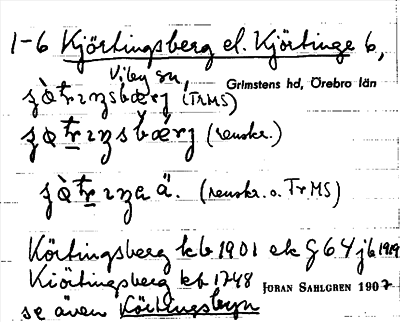 1-6 Kjörtingsberg el. Kjörtinge 6,
Viby sn,
Grimstens hd, Örebro län
(TrMS)
(renskr.)
ä. (renskr. o. TrMS)
Körtingsberg kb 1901 ek G 64 jb 1919
Kiörtingsberg kb 1748
JÖRAN SAHLGREN 1907
se även Körtingsbyn